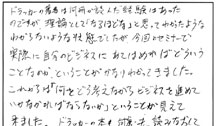 ドラッカーの著書は何冊か読んだ経験はあった
のですが、理論として「なるほどな」と思ってわかったような
わからないような状態でしたが、今回セミナーで
実際に自分のビジネスにあてはめればどういう
ことなのか、ということがかなりわかってきました。
これからは「何をどう考えながらビジネスを進めて
いかなければならないか」ということが見えて
来ました。ドラッカーの本も何度か読みなおして